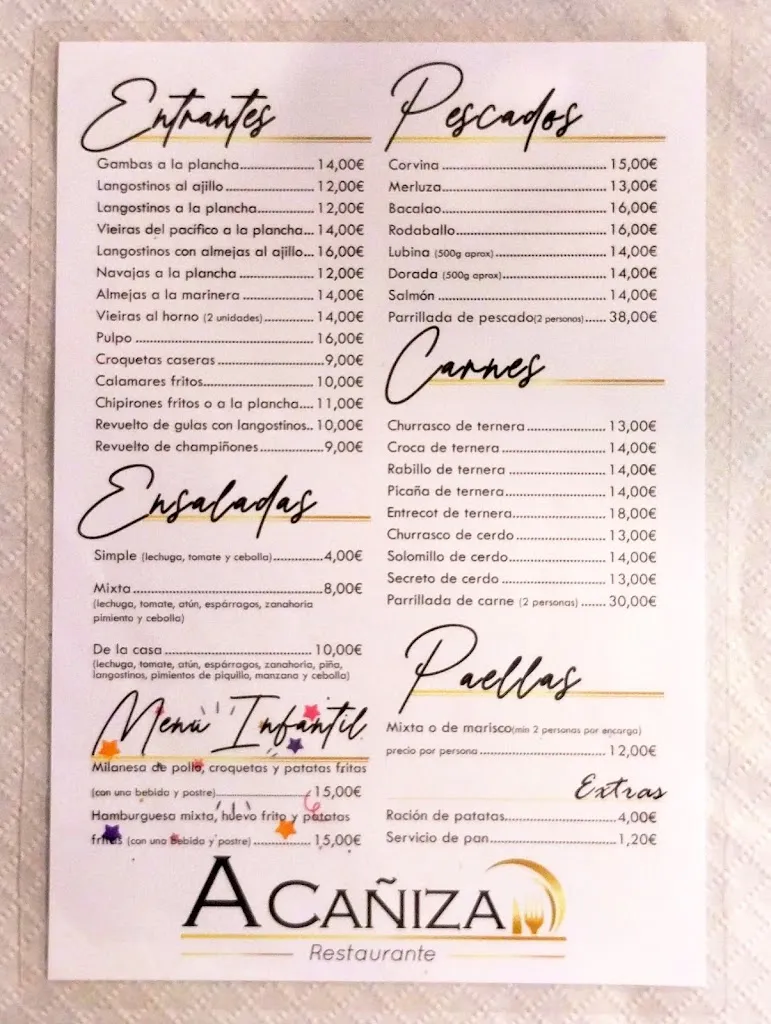 Entrantes
Gambas a la plancha........................ 14,00€
Langostinos al ajillo ........................ 12,00€
Langostinos a la plancha................. 12,00€
Vieiras del pacífico a la plancha... 14,00€
Langostinos con almejas al ajillo... 16,00€
Navajas a la plancha ...................... 12,00€
Almejas a la marinera ..................... 14,00€
Vieiras al horno (2 unidades)................ 14,00€
Pulpo .................................................... 16,00€
Croquetas caseras ............................. 9,00€
Calamares fritos................................. 10,00€
Chipirones fritos o a la plancha.... 11,00€
Revuelto de gulas con langostinos.. 10,00€
Revuelto de champiñones.................. 9,00€
Ensaladas
Simple (lechuga, tomate y cebolla)..............4,00€
Mixta ...................................................... 8,00€
(lechuga, tomate, atún, espárragos, zanahoria
pimiento y cebolla)
De la casa .......................................... 10,00€
(lechuga, tomate, atún, espárragos, zanahoria, piña,
langostinos, pimientos de piquillo, manzana y cebolla)
Menú Infantil
Milanesa de pollo, croquetas y patatas fritas
(con una bebida y postre) ............................ 15,00€
Hamburguesa mixta, huevo frito y patatas
fritas (con una bebida y postre) ................. 15,00€
Pescados
Corvina ................................................ 15,00€
Merluza................................................ 13,00€
Bacalao ............................................... 16,00€
Rodaballo............................................ 16,00€
Lubina (500g aprox) ............................... 14,00€
Dorada (500g aprox).............................. 14,00€
Salmón ................................................. 14,00€
Parrillada de pescado(2 personas)...... 38,00€
Carnes
Churrasco de ternera ....................... 13,00€
Croca de ternera .............................. 14,00€
Rabillo de ternera ............................ 14,00€
Picaña de ternera............................. 14,00€
Entrecot de ternera.......................... 18,00€
Churrasco de cerdo ......................... 13,00€
Solomillo de cerdo............................ 14,00€
Secreto de cerdo .............................. 13,00€
Parrillada de carne (2 personas) ....... 30,00€
Paellas
Mixta o de marisco(min 2 personas por encargo)
precio por persona ..................................... 12,00€
Extras
Ración de patatas............................... 4,00€
Servicio de pan.................................... 1,20€
A CAÑIZA
Restaurante